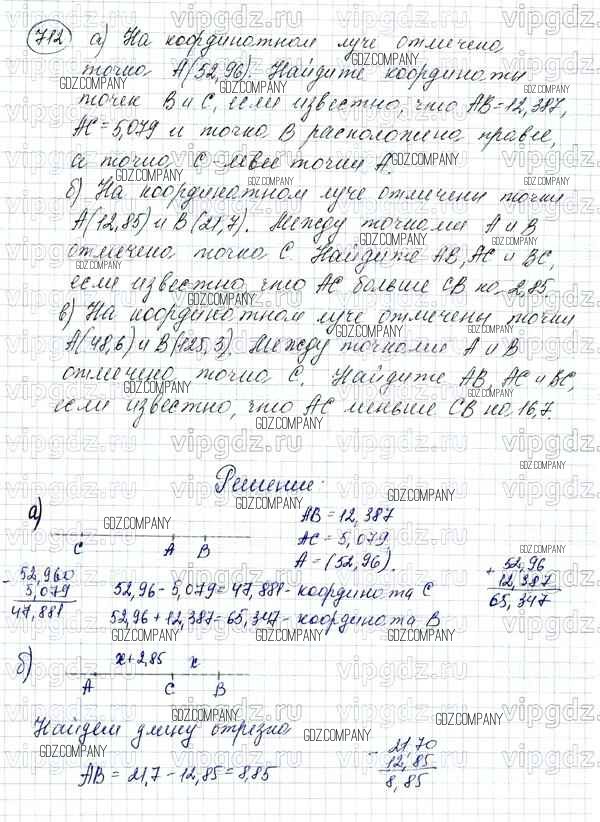 712 а) На координатном луче отмечена
точка А(52,96). Найдите координаты
точек В и С, если известно, что АВ=12,387,
АС=5,079 и точка В расположена правее,
а точка С - левее точки А.
б) На координатном луче отмечены точки
А(12,85) и В(21,7). Между точками А и В
отмечена точка С. Найдите АВ, АС и ВС,
если известно, что АС больше СВ на 2,85
в) На координатном луче отмечены точки
А(48,6) и В(125,3). Между точками А и В
отмечена точка С. Найдите АВ, АС и ВС,
если известно, что АС меньше СВ на 16,7.
Решение:
а)
С А В
АВ = 12,387
АС = 5,079
А = (52,96).
- 52,960
5,079
47,881
52,96 - 5,079 = 47,881 - координата С
52,96 + 12,387 = 65,347 - координата В
+ 52,96
12,387
65,347
б)
x+2,85 x
А С В
Найдем длину отрезка
АВ = 21,7 - 12,85 = 8,85
- 21,70
12,85
8,85
vipgdz.ru
GDZ.COMPANY